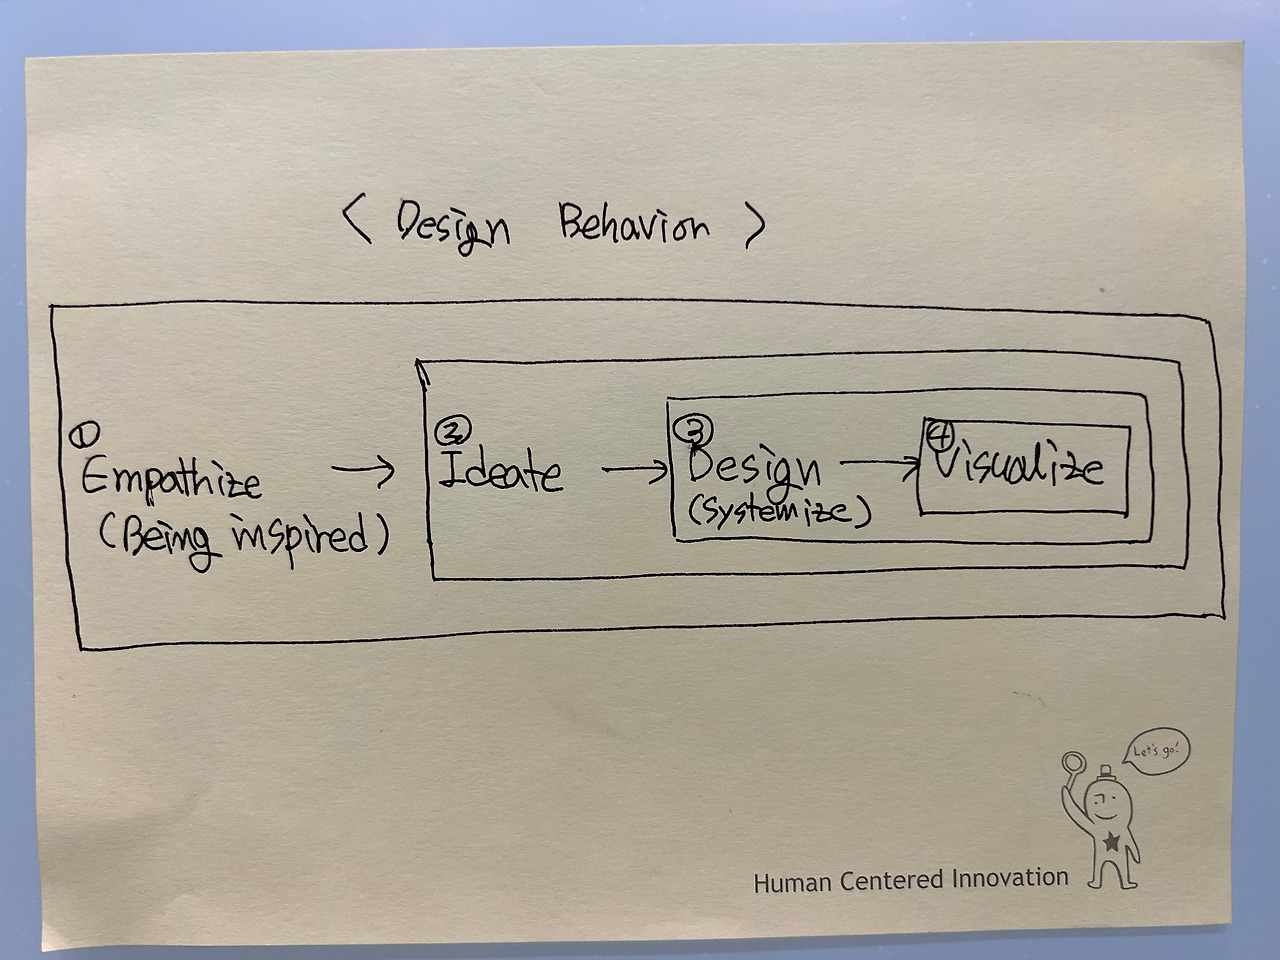 < Design Behavior >
① Empathize → ② Ideate → ③ Design → ④ Visualize
(Being inspired)
(Systemize)
Let's go!
Human Centered Innovation